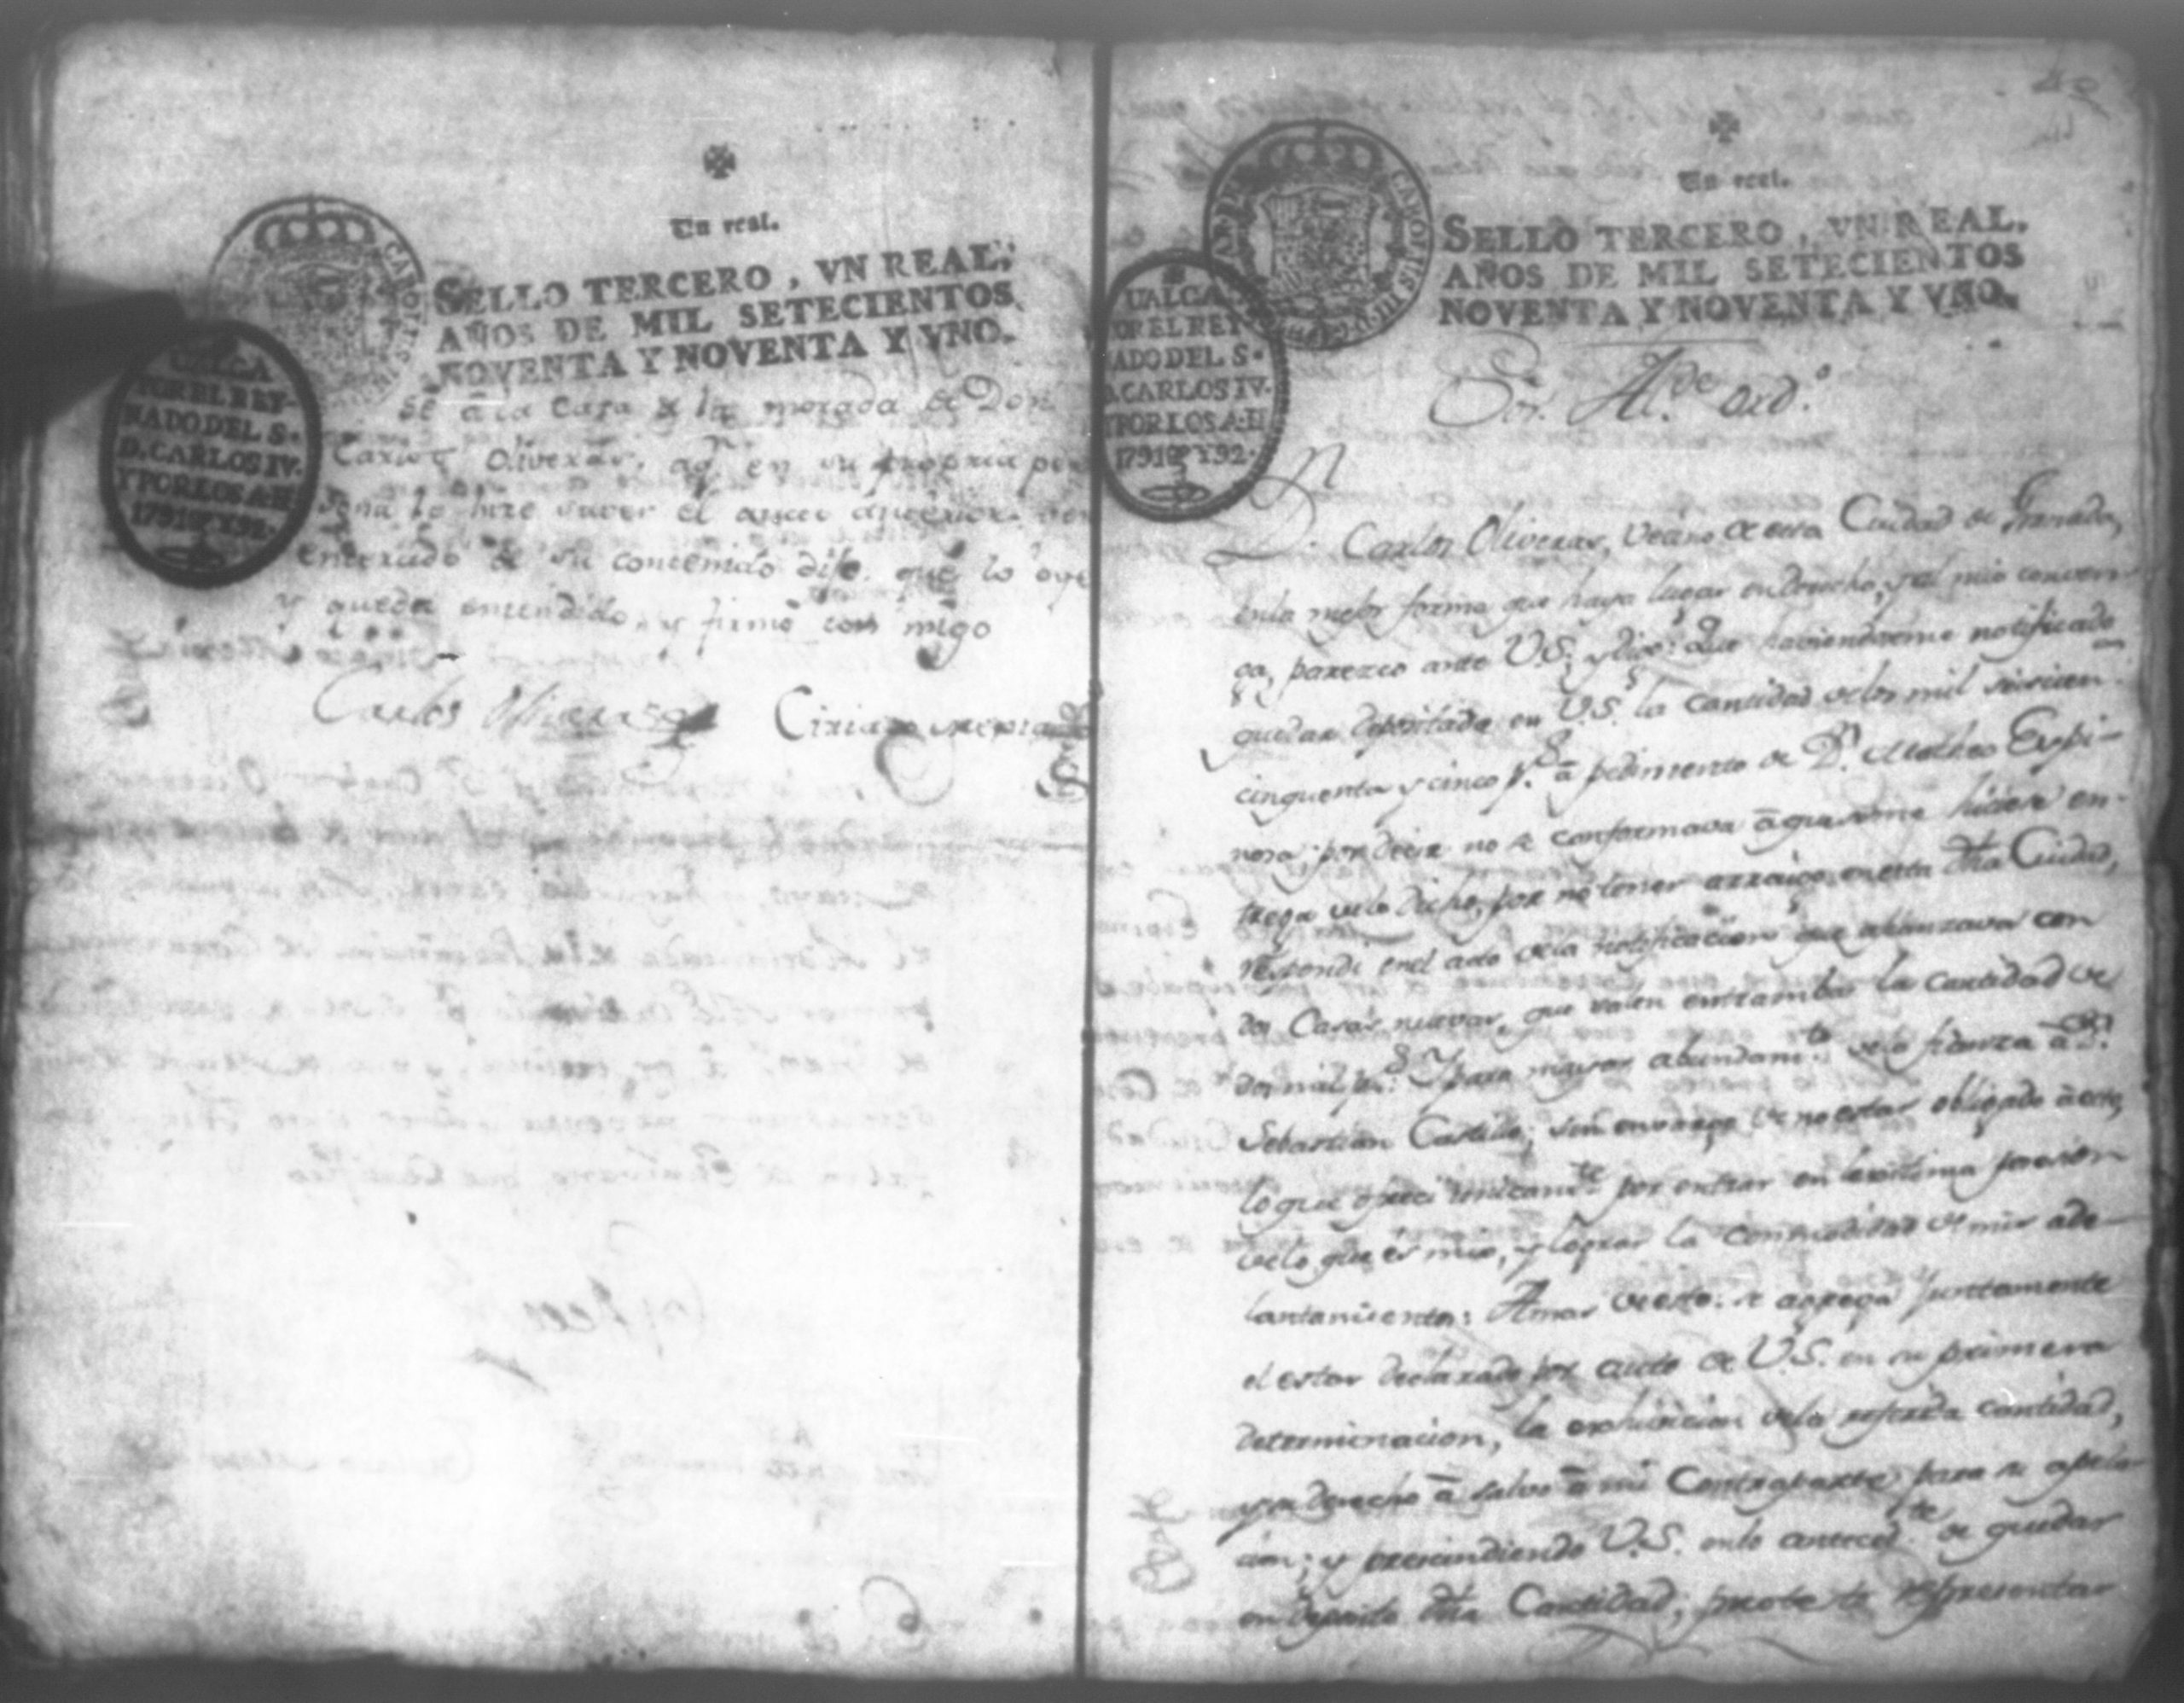 Un real.
SELLO TERCERO, VN REAL,
AÑOS DE MIL SETECIENTOS
NOVENTA Y NOVENTA Y VNO.
CAROLUS
UALGA
POR EL REY
NADO DEL S.
D. CARLOS IV.
Y POR LOS A. D
1791 Y 92.
sé â la casa de la morada de Don
Carlos Oliveras, aqn. en su propria per
sona le hize saver el auto anterior
enterado de su contenido dijo, que lo oye
y queda entendido, y firmó con migo
Carlos Oliveras
Un real.
SELLO TERCERO, VN REAL.
AÑOS DE MIL SETECIENTOS
NOVENTA Y NOVENTA Y VNO.
UALGA
POR EL REY
NADO DEL S.
D. CARLOS IV.
Y POR LOS A. D
1791 Y 92.
Sor. Alde. ordo.
Dn. Carlos Oliveras, Vecino de esta Ciudad de Granada,
en la mejor forma que haya lugar en derecho, y al mio conven
ga, parezco ante V.S. y digo: Que haviendoseme notificado
quedar depositada en V.S. la cantidad de los mil
cinquenta y cinco ps. â pedimento de Dn. Matheo Espi-
nosa, por decir no se conformava â que se me hiciese en-
trega de lo dicho, por no tener arraigo en esta dha Ciudad,
respondi en el acto de la notificacion que afianzava con
dos Casas nuevas, que valen entrambas la cantidad de
dos mil ps. Y para mayor abundamto. de la fianza â Dn.
Sebastian Castillo; sin envargo de no estar obligado â esto,
lo que ofreci unicamte. por entrar en lexitima posesion
de lo que és mio, y lograr la commodidad de mis ade-
lantamientos: Amas de esto: se agrega juntamente
el estar declarado por auto de V.S. en su primera
determinacion, la exhivicion de la referida cantidad,
y su derecho â salvo â mi Contraparte para su apela-
cion; y prescindiendo V.S. en lo antecedte. de quedar
en deposito dha Cantidad; representar